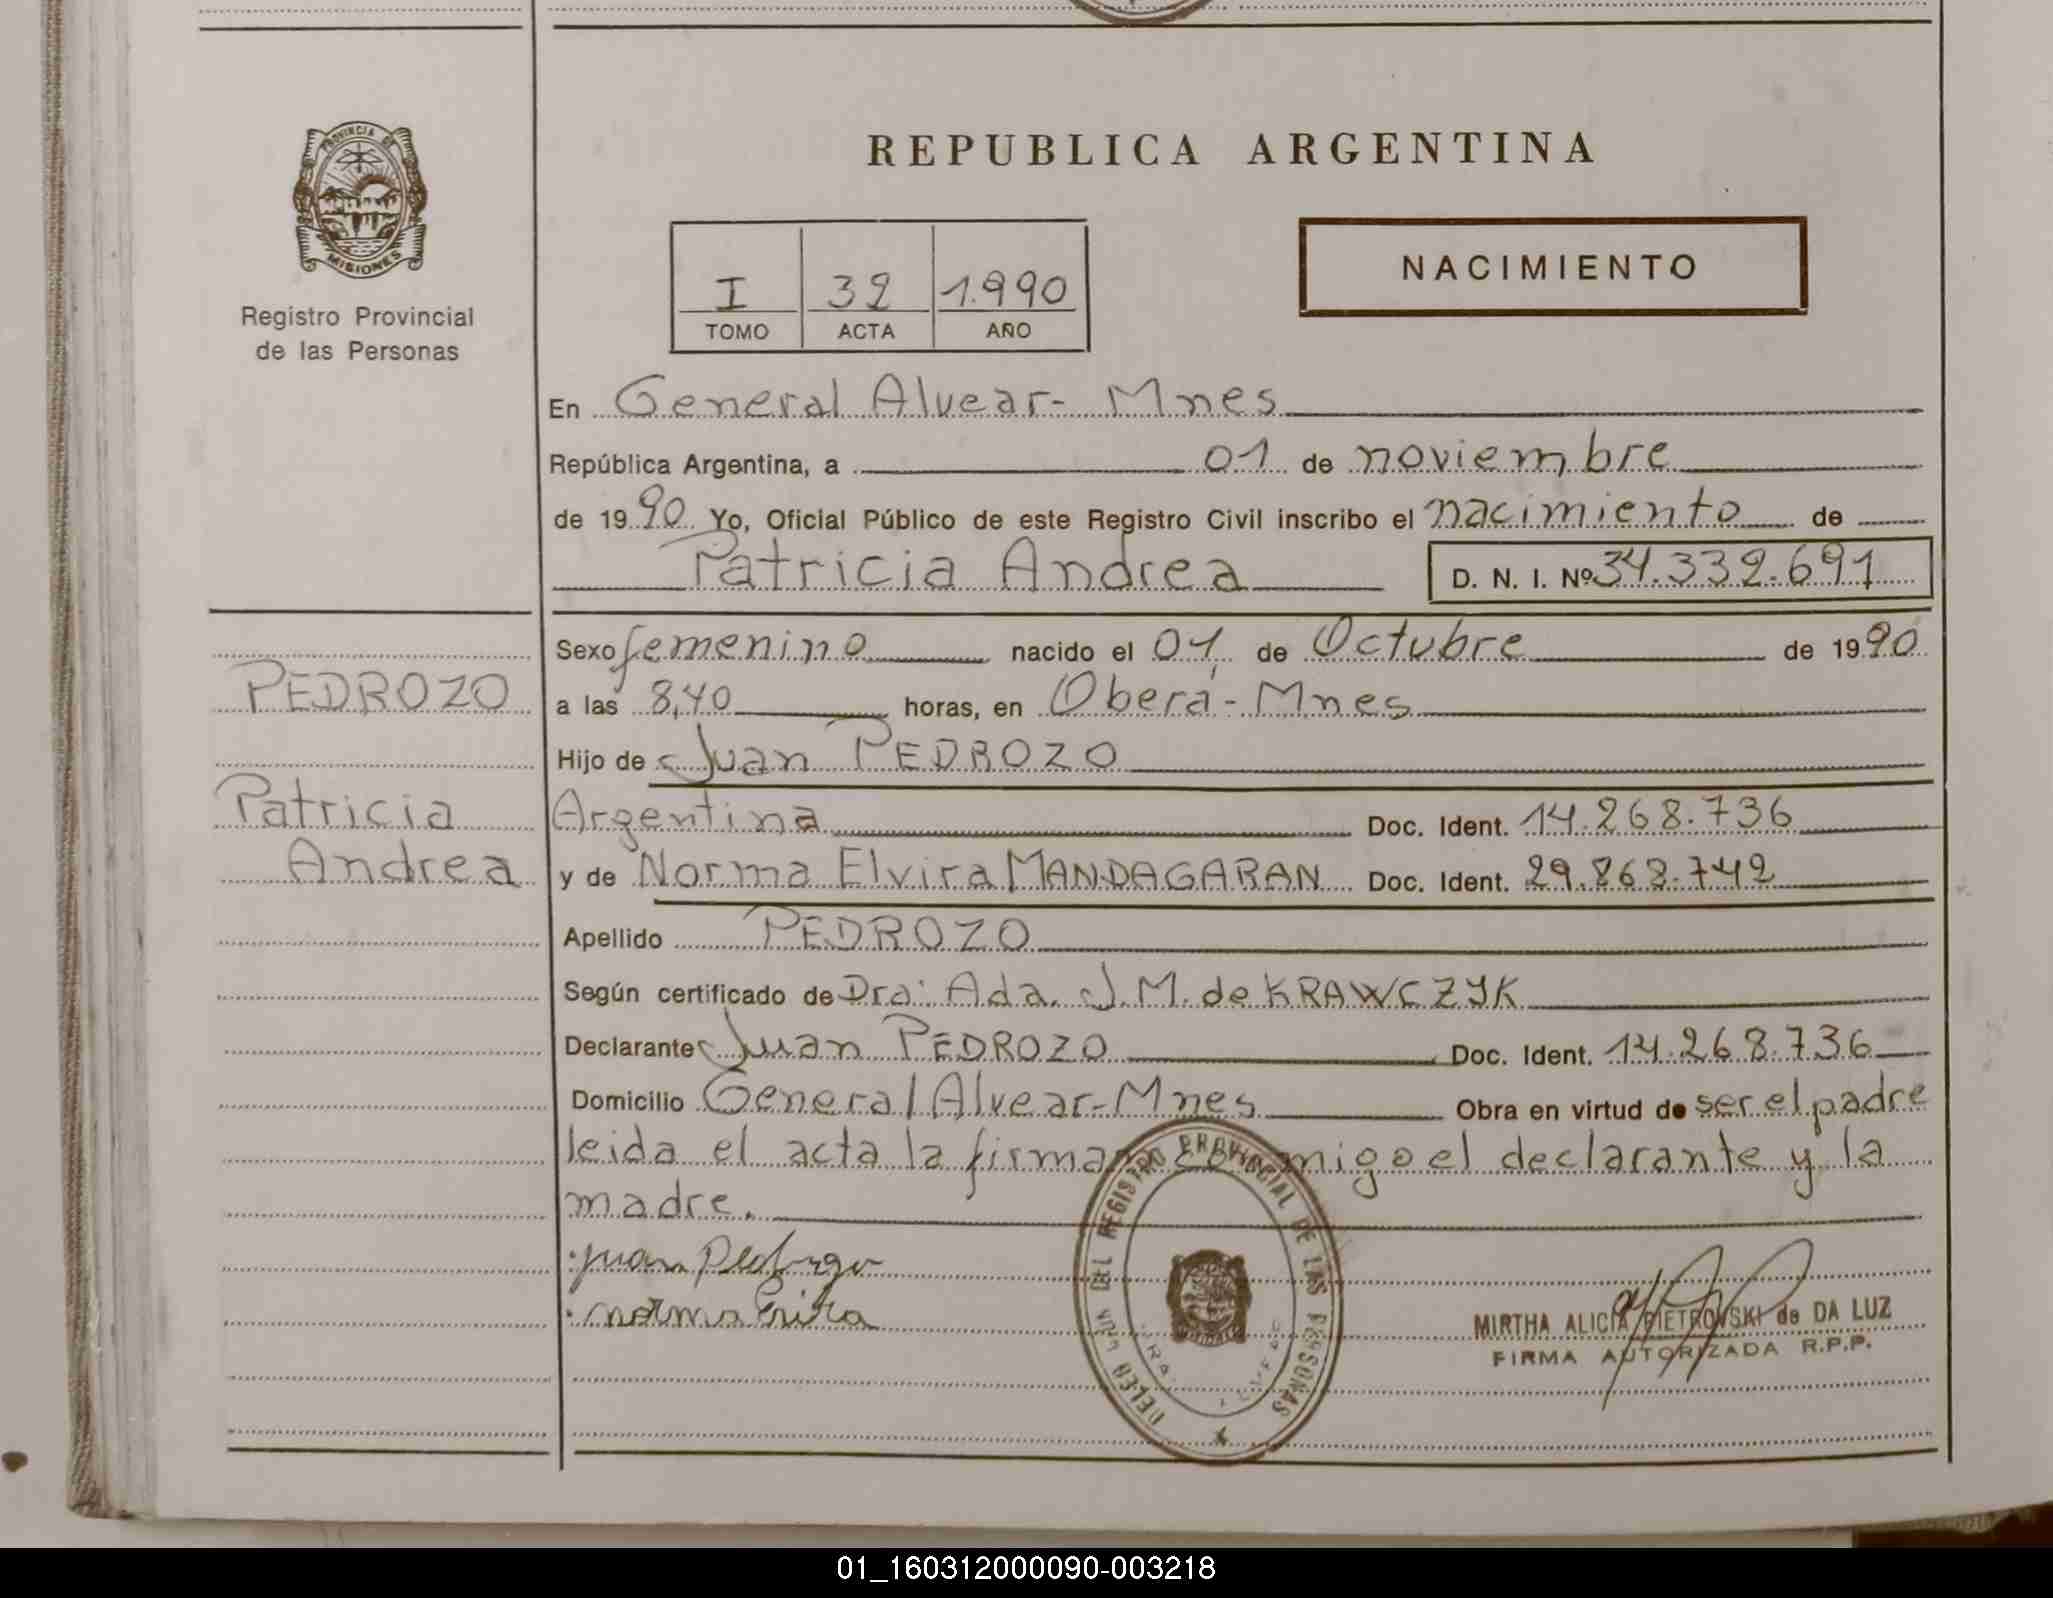 PROVINCIA DE
MISIONES
Registro Provincial
de las Personas
REPUBLICA ARGENTINA
I 32 1.990
TOMO ACTA AÑO
NACIMIENTO
En General Alvear - Mnes
República Argentina, a 01 de noviembre
de 19 90 Yo, Oficial Público de este Registro Civil inscribo el nacimiento de
Patricia Andrea D. N. I. Nº 34.332.691
PEDROZO
Patricia
Andrea
Sexo femenino nacido el 01 de Octubre de 19 90
a las 8,40 horas, en Oberá - Mnes
Hijo de Juan PEDROZO
Argentina Doc. Ident. 14.268.736
y de Norma Elvira MANDAGARAN Doc. Ident. 29.868.742
Apellido PEDROZO
Según certificado de Dra: Ada. J. M. de KRAWCZYK
Declarante Juan PEDROZO Doc. Ident. 14.268.736
Domicilio General Alvear - Mnes Obra en virtud de ser el padre
leida el acta la firman conmigo el declarante y la
madre.
juan Pedrozo
norma
DEL REGISTRO PROVINCIAL DE LAS PERSONAS
MIRTHA ALICIA PIETROVSKI de DA LUZ
FIRMA AUTORIZADA R.P.P.
01_160312000090-003218